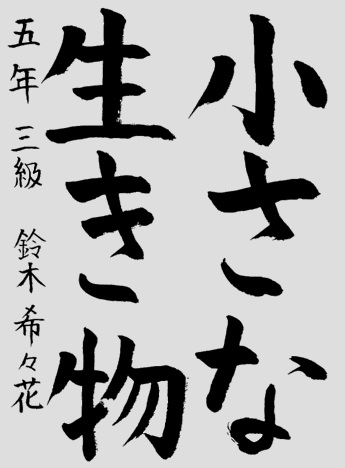 小さな
生き物
五年 三級 鈴木希々花